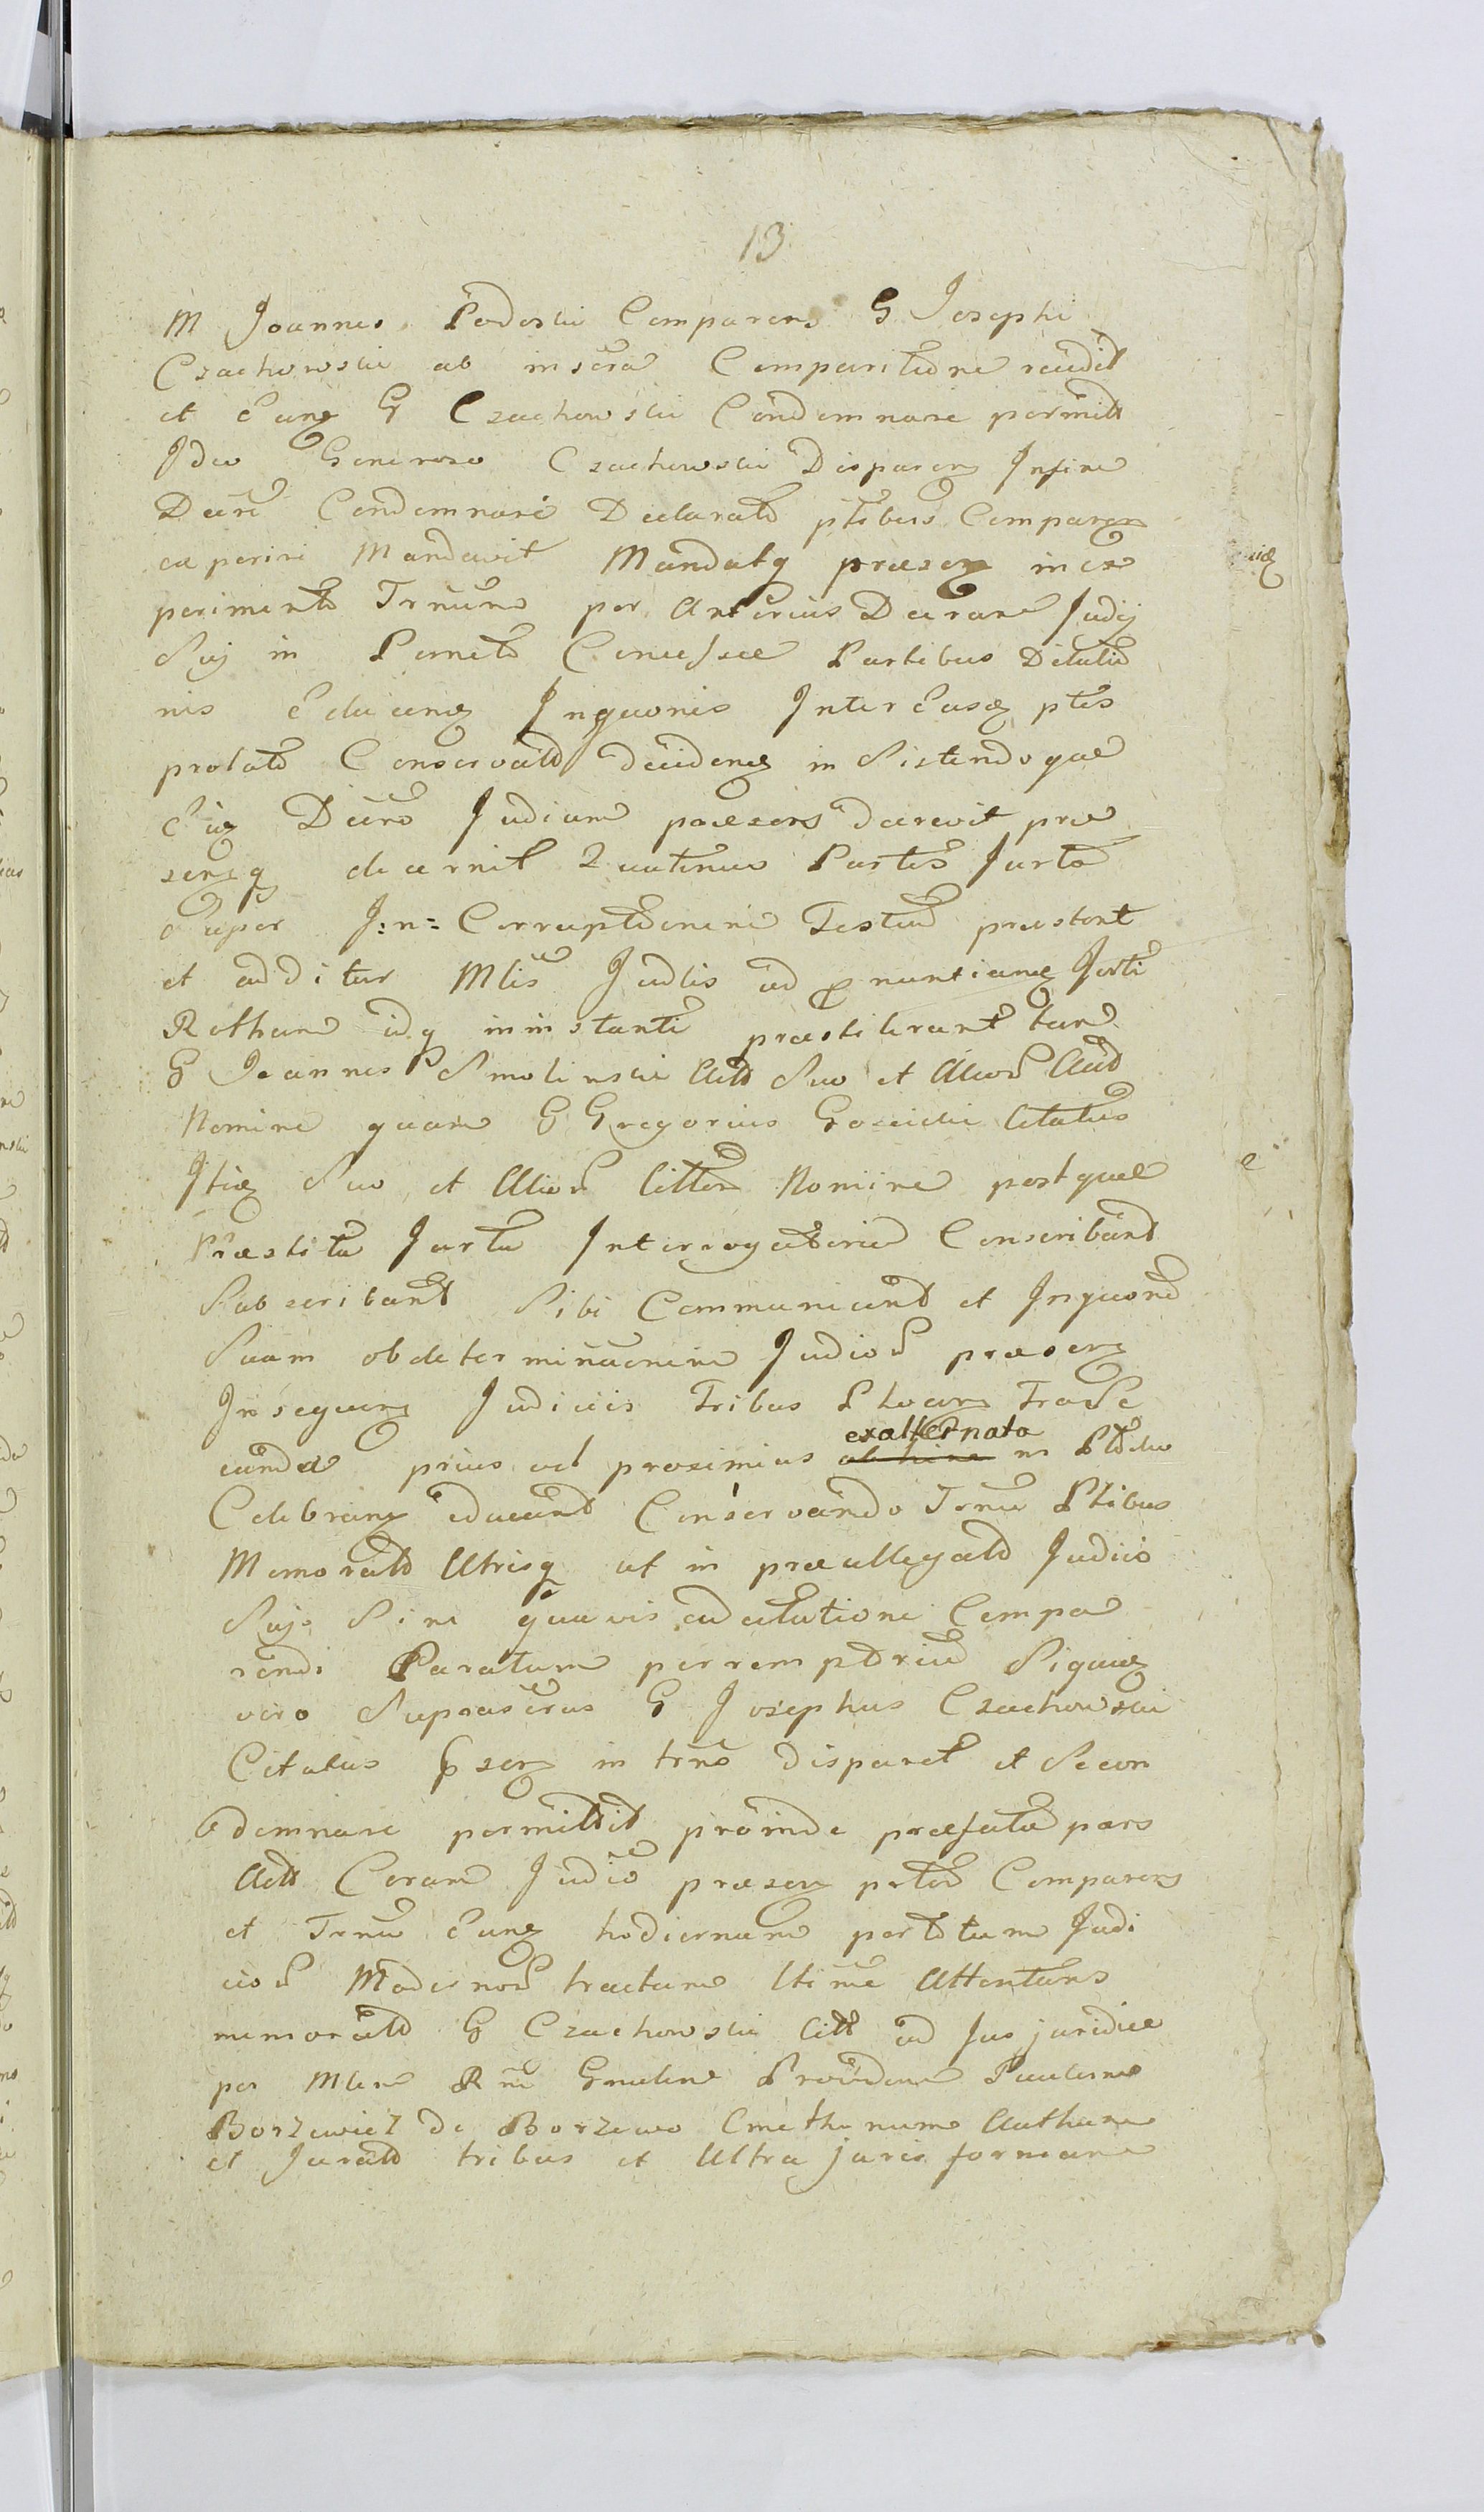 13
M Joannes Podoski Comparens G Josephi
Czachowski ab inscra Comparitione recidit
et Eung G Czachowski Condemnare permitt
Ideo Generoso Czachowski Disparen Infine
Decre Condemnari Declarato ptibus Comparen
experiri Mandavit Mandatq praesen in ex
perimento Trnum per Anterius Decram Judij
Suj in Pometo Concessae Partibus Dilatio
nis Educing Inquonis Inter Easq ptes
prolato Conservatt decidenq in Sistendo quae
Ejq Decro Judicium praesens decrevit prae
sensq decernit Quatenus Partes Jurta
Super J:n: Corruptionem Testium praestent
et additur Mlis Judlis ad pnuntiang Jurti
Rotham idq in instanti praestiterunt tam
G Joannes Smolinski Actt Suo et Alior Act
Nomine quam G Gregorius Gosicki Citatus
Itiq Suo et Alior Citton Nomine post quae
Praestita Jurta Interrogatoria Conscribant
Subscribant Sibi Communicent et Inquone
Suam ob determinaonem Judior praesen
In sequen Judiciis Tribus Plocen Trade
canda prius vel proximius exalternata in Ptklo
Celebrang educant Conservando Trnu Ptibus
Memoratt Utrisq ut in praeallegato Judicio
Suj Sine quavis ad citatione Compa
rendi Paratum perremptrium Siquiq
vero Suprascrus G Josephus Czachowski
Citatus psen in trno disparet et Se con
demnare permittit proinde praefata pars
Actt Coram Judicio praesen pter Comparens
et Trnu Eung hodiernum per totum Judi
cior Modernor tractum ltime Attentans
memoratt G Czachowski Citt ad Jus juridice
per Mlem Rni Gnulem Providum Paulum
Borzewicz de Borzewo Cmethonum Authum
et Juratt tribus et Ultra juris formam